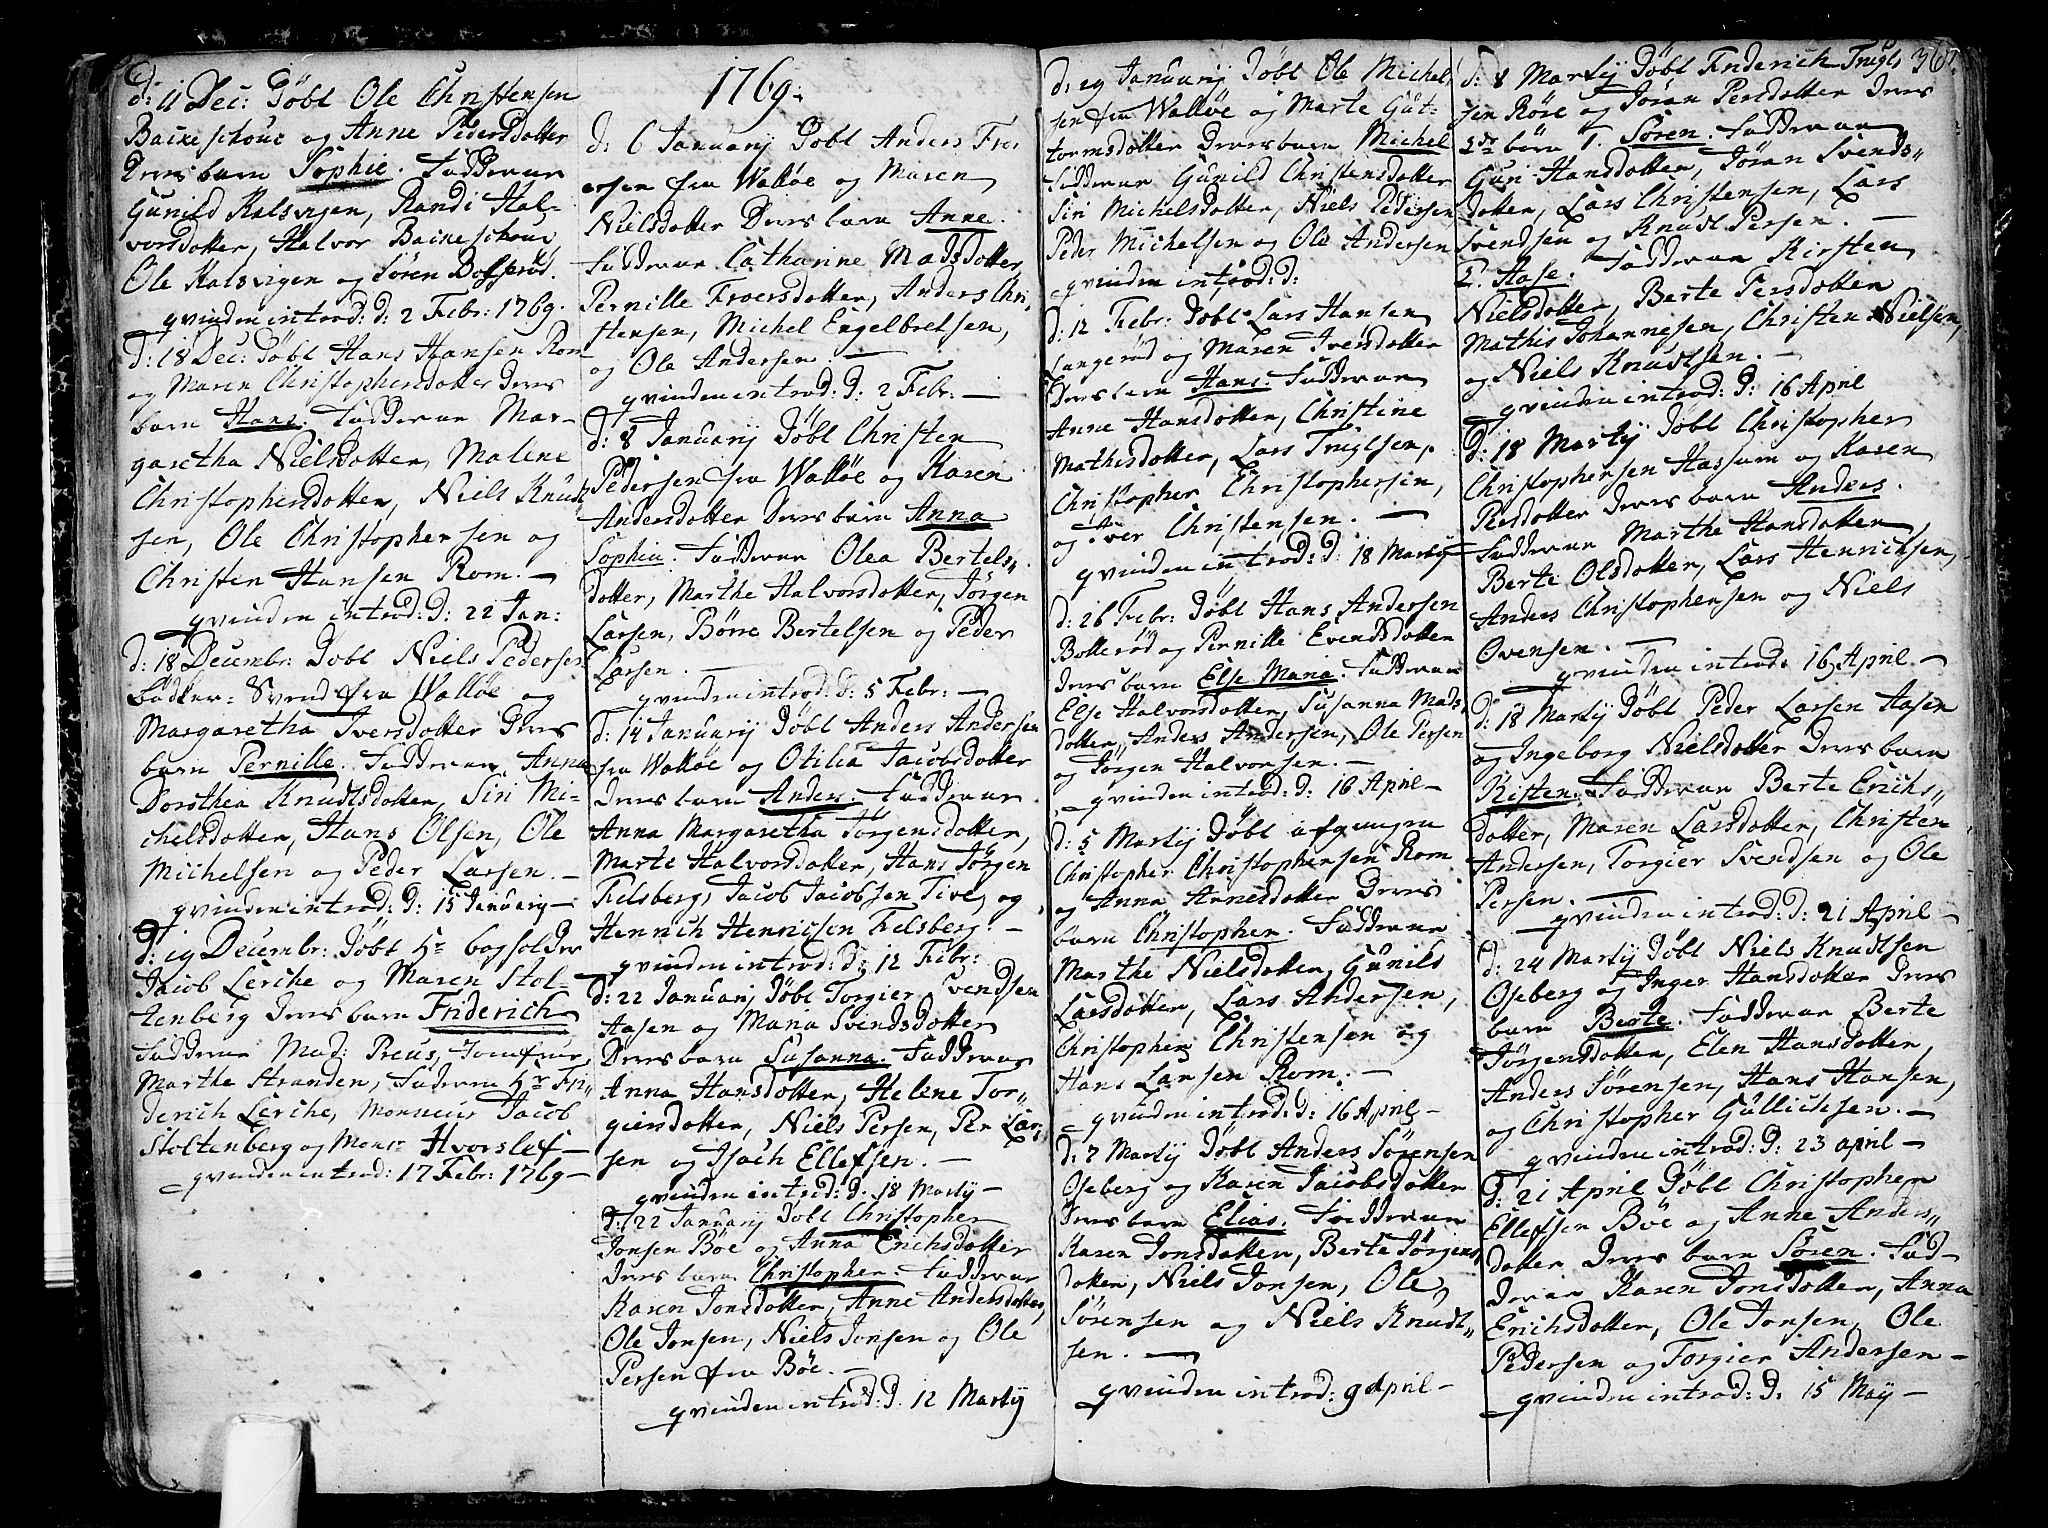 d: 11 Dec: Döbt Ole Christensen
Backeschoue og Anne Pedersdotter
Deres barn Sophie. Fadderne
Gunild Kalsvigen, Randi Hal-
vorsdotter, Halvor Backeschoue,
Ole Kalsvigen og Sören Bosserød.
qvinden introd: d: 2 Febr: 1769.
d: 18 Dec: Döbt Hans Hansen Rom
og Maren Christophersdotter deres
barn Hans. Fadderne Mar-
garetha Nielsdotter, Malene
Christophersdotter, Niels Knud-
sen, Ole Christophersen og
Christen Hansen Rom. —
qvinden introd: d: 22 Jan:
d: 18 Decembr: Döbt Niels Pedersen
Bödker-Svend fra Walløe og
Margaretha Iversdotter Deres
barn Pernille. Fadderne Anna
Dorothea Knudtsdotter, Siri Mi-
chelsdotter, Hans Olsen, Ole
Michelsen og Peder Larsen. —
qvinden introd: d: 15 January —
d: 19 Decembr: Döbt Hr bogholder
Jacob Lerche og Maren Stol-
tenberg Deres barn Friderich
Fadderne Mad: Preus, Jomfrue
Marthe Stranden, Hr Fri-
derich Lerche, Monsieur Jacob
Stoltenberg og Monsr Hvorslef —
qvinden introd: 17 Febr: 1769 —
1769.
d: 6 January Döbt Anders Fro-
ersen fra Walløe og Maren
Nielsdotter Deres barn Anne.
Fadderne Catharine Madsdotter,
Pernille Froersdotter, Anders Chri-
stensen, Michel Engelbretsen,
og Ole Andersen. —
qvinden introd: d: 2 Febr: —
d: 8 January Döbt Christen
Pedersen fra Walløe og Karen
Andersdotter Deres barn Anna
Sophia. Fadderne Olea Bertels-
dotter, Marthe Halvorsdotter, Jörgen
Larsen, Börre Bertelsen og Peder
Larsen. —
qvinden introd: d: 5 Febr: —
d: 14 January Döbt Anders Andersen
fra Walløe og Otilia Jacobsdotter
Deres barn Anders. Fadderne
Anna Margaretha Jörgensdotter,
Marte Halvorsdotter, Hans Jörgen
Felsberg, Jacob Jacobsen Tive, og
Henrich Henrichsen Felsberg. —
qvinden introd: d: 12 Febr:
d: 22 January Döbt Torgier Svendsen
Aasen og Maria Svendsdotter
Deres barn Susanna. Fadderne
Anna Hansdotter, Helene Tor-
giersdotter, Niels Persen, Per Lar-
sen og Isach Ellefsen. —
qvinden introd: d: 18 Marty —
d: 22 January Döbt Christopher
Jonsen Böe og Anna Erichsdotter
Deres barn Christopher. Fadderne
Karen Jonsdotter, Anne Andersdotter,
Ole Jonsen, Niels Jonsen og Ole
Persen fra Böe. —
qvinden introd: d: 12 Marty
d: 29 January Döbt Ole Michel-
sen fra Walløe og Marte Gut-
tormsdotter Deres barn Michel
Fadderne Gunild Christensdotter
Siri Michelsdotter, Niels Pedersen
Peder Michelsen og Ole Andersen
qvinden introd: d:
d: 12 Febr: Döbt Lars Hansen
Langeröd og Maren Iversdotter
Deres barn Hans. Fadderne
Anne Hansdotter, Christine
Mathisdotter, Lars Truglsen,
Christopher Christophersen,
og Iver Christensen. —
qvinden introd: d: 18 Marty —
d: 26 Febr: Döbt Hans Andersen
Bolleröd og Pernille Evendsdotter
Deres barn Else Maria. Fadderne
Else Halvorsdotter, Susanna Mads-
dotter, Anders Andersen, Ole Persen
og Jörgen Halvorsen. —
qvinden introd: d: 16 April —
d: 5 Marty Döbt afgangne
Christopher Christophersen Rom
og Anna Arnesdotter Deres
barn Christopher. Fadderne
Marthe Nielsdotter, Gunild
Larsdotter, Lars Andersen,
Christopher Christensen og
Hans Larsen Rom. —
qvinden introd: d: 16 April —
d: 7 Marty Döbt Anders Sörensen
Oseberg og Karen Jacobsdotter
Deres barn Elias. Fadderne
Karen Jonsdotter, Berte Jörgens-
dotter, Niels Jonsen, Ole
Sörensen og Niels Knudt-
sen. —
qvinden introd: 9 April —
367.
d: 8 Marty Döbt Friderich Trugls
sen Röse og Jöran Persdotter Deres
2de börn 1. Sören. Fadderne
Guri Hansdotter, Jöran Svends-
dotter, Lars Christensen, Lars
Svendsen og Knud Persen. —
2. Aase. Fadderne Kirsten
Nielsdotter, Berte Persdotter
Mathis Johannesen, Christen Nielsen,
og Niels Knudtsen. —
qvinden introd: d: 16 April
d: 18 Marty Döbt Christopher
Christophersen Hassum og Karen
Persdotter Deres barn Anders.
Fadderne Marthe Hansdotter,
Berte Olsdotter, Lars Henrichsen,
Anders Christophersen og Niels
Ovensen. —
qvinden introd: 16 April —
d: 18 Marty Döbt Peder Larsen Aasen
og Ingeborg Nielsdotter Deres barn
Kisten. Fadderne Berte Erichs-
dotter, Maren Larsdotter, Christen
Andersen, Torgier Svendsen og Ole
Persen. —
qvinden introd: d: 21 April —
d: 24 Marty Döbt Niels Knudtsen
Oseberg og Inger Hansdotter Deres
barn Berte. Fadderne Berte
Jörgensdotter, Elen Hansdotter,
Anders Sörensen, Hans Hansen,
og Christopher Gullichsen. —
qvinden introd: d: 23 april —
d: 21 April Döbt Christopher
Ellefsen Böe og Anne Anders-
dotter Deres barn Sören. Fad-
derne Karen Jonsdotter, Anna
Erichsdotter, Ole Jonsen, Ole
Pedersen og Torgier Andersen —
qvinden introd: d: 15 May —